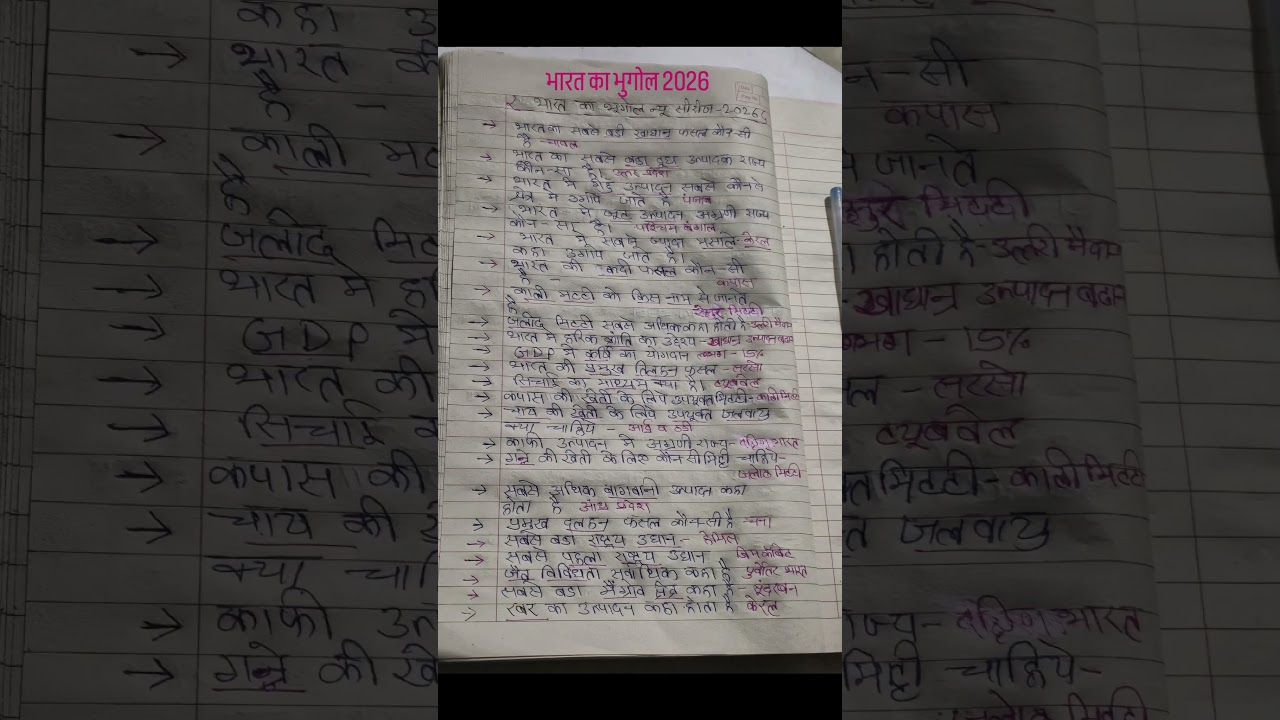 भारत का भुगोल 2026
भारत का भूगोल न्यू सीरीज-2026
→ भारत का सबसे बडी खाद्यान फसल कौन-सी
है - चावल
→ भारत का सबसे बडा दुध उत्पादक राज्य
कौन-सा है। उत्तर प्रदेश
→ भारत में गेहु उत्पादन सबसे कौनसे
क्षेत्र में उगाये जाते है पंजाब
→ भारत में जूट उत्पादन अग्रणी राज्य
कौन-सा है। पश्चिम बंगाल
→ भारत में सबसे ज्यादा मसाले-केरल
कहा उगाये जाते है।
→ भारत की नकदी फसल कौन-सी
है - कपास
→ काली मटटी को किस नाम से जानते
है रेगुर मिटटी
→ जलोढ मिटटी सबसे अधिक कहा होती है-उत्तरी मैदान
→ भारत में हरित क्रांति का उद्देश्य-खाद्यान्न उत्पादन बढाना
→ GDP में कृषि का योगदान लगभग - 15%
→ भारत की प्रमुख तिलहन फसल - सरसो
→ सिचाई का माध्यम क्या है। टयूबवेल
→ कपास की खेती के लिए उपयुक्त मिटटी-काली मिटटी
→ चाय की खेती के लिये उपयुक्त जलवायु
क्या चाहिये - आर्द्र व ठंडी
→ काफी उत्पादन में अग्रणी राज्य-दक्षिण भारत
→ गन्ने की खेती के लिए कौन सी मिट्टी चाहिये-
जलोढ मिटटी
→ सबसे अधिक बागबानी उत्पादन कहा
होता है आंध्र प्रदेश
→ प्रमुख दलहन फसल कौन-सी है - चना
→ सबसे बडा राष्ट्रीय उधान - हेमिस
→ सबसे पहला राष्ट्रीय उधान जिम कॉर्बेट
→ जैव विविधता सर्वाधिक कहा है पुर्वोत्तर भारत
→ सबसे बडा मैंग्रोव क्षेत्र कहा है - सुंदरबन
→ रबर का उत्पादन कहा होता है केरल